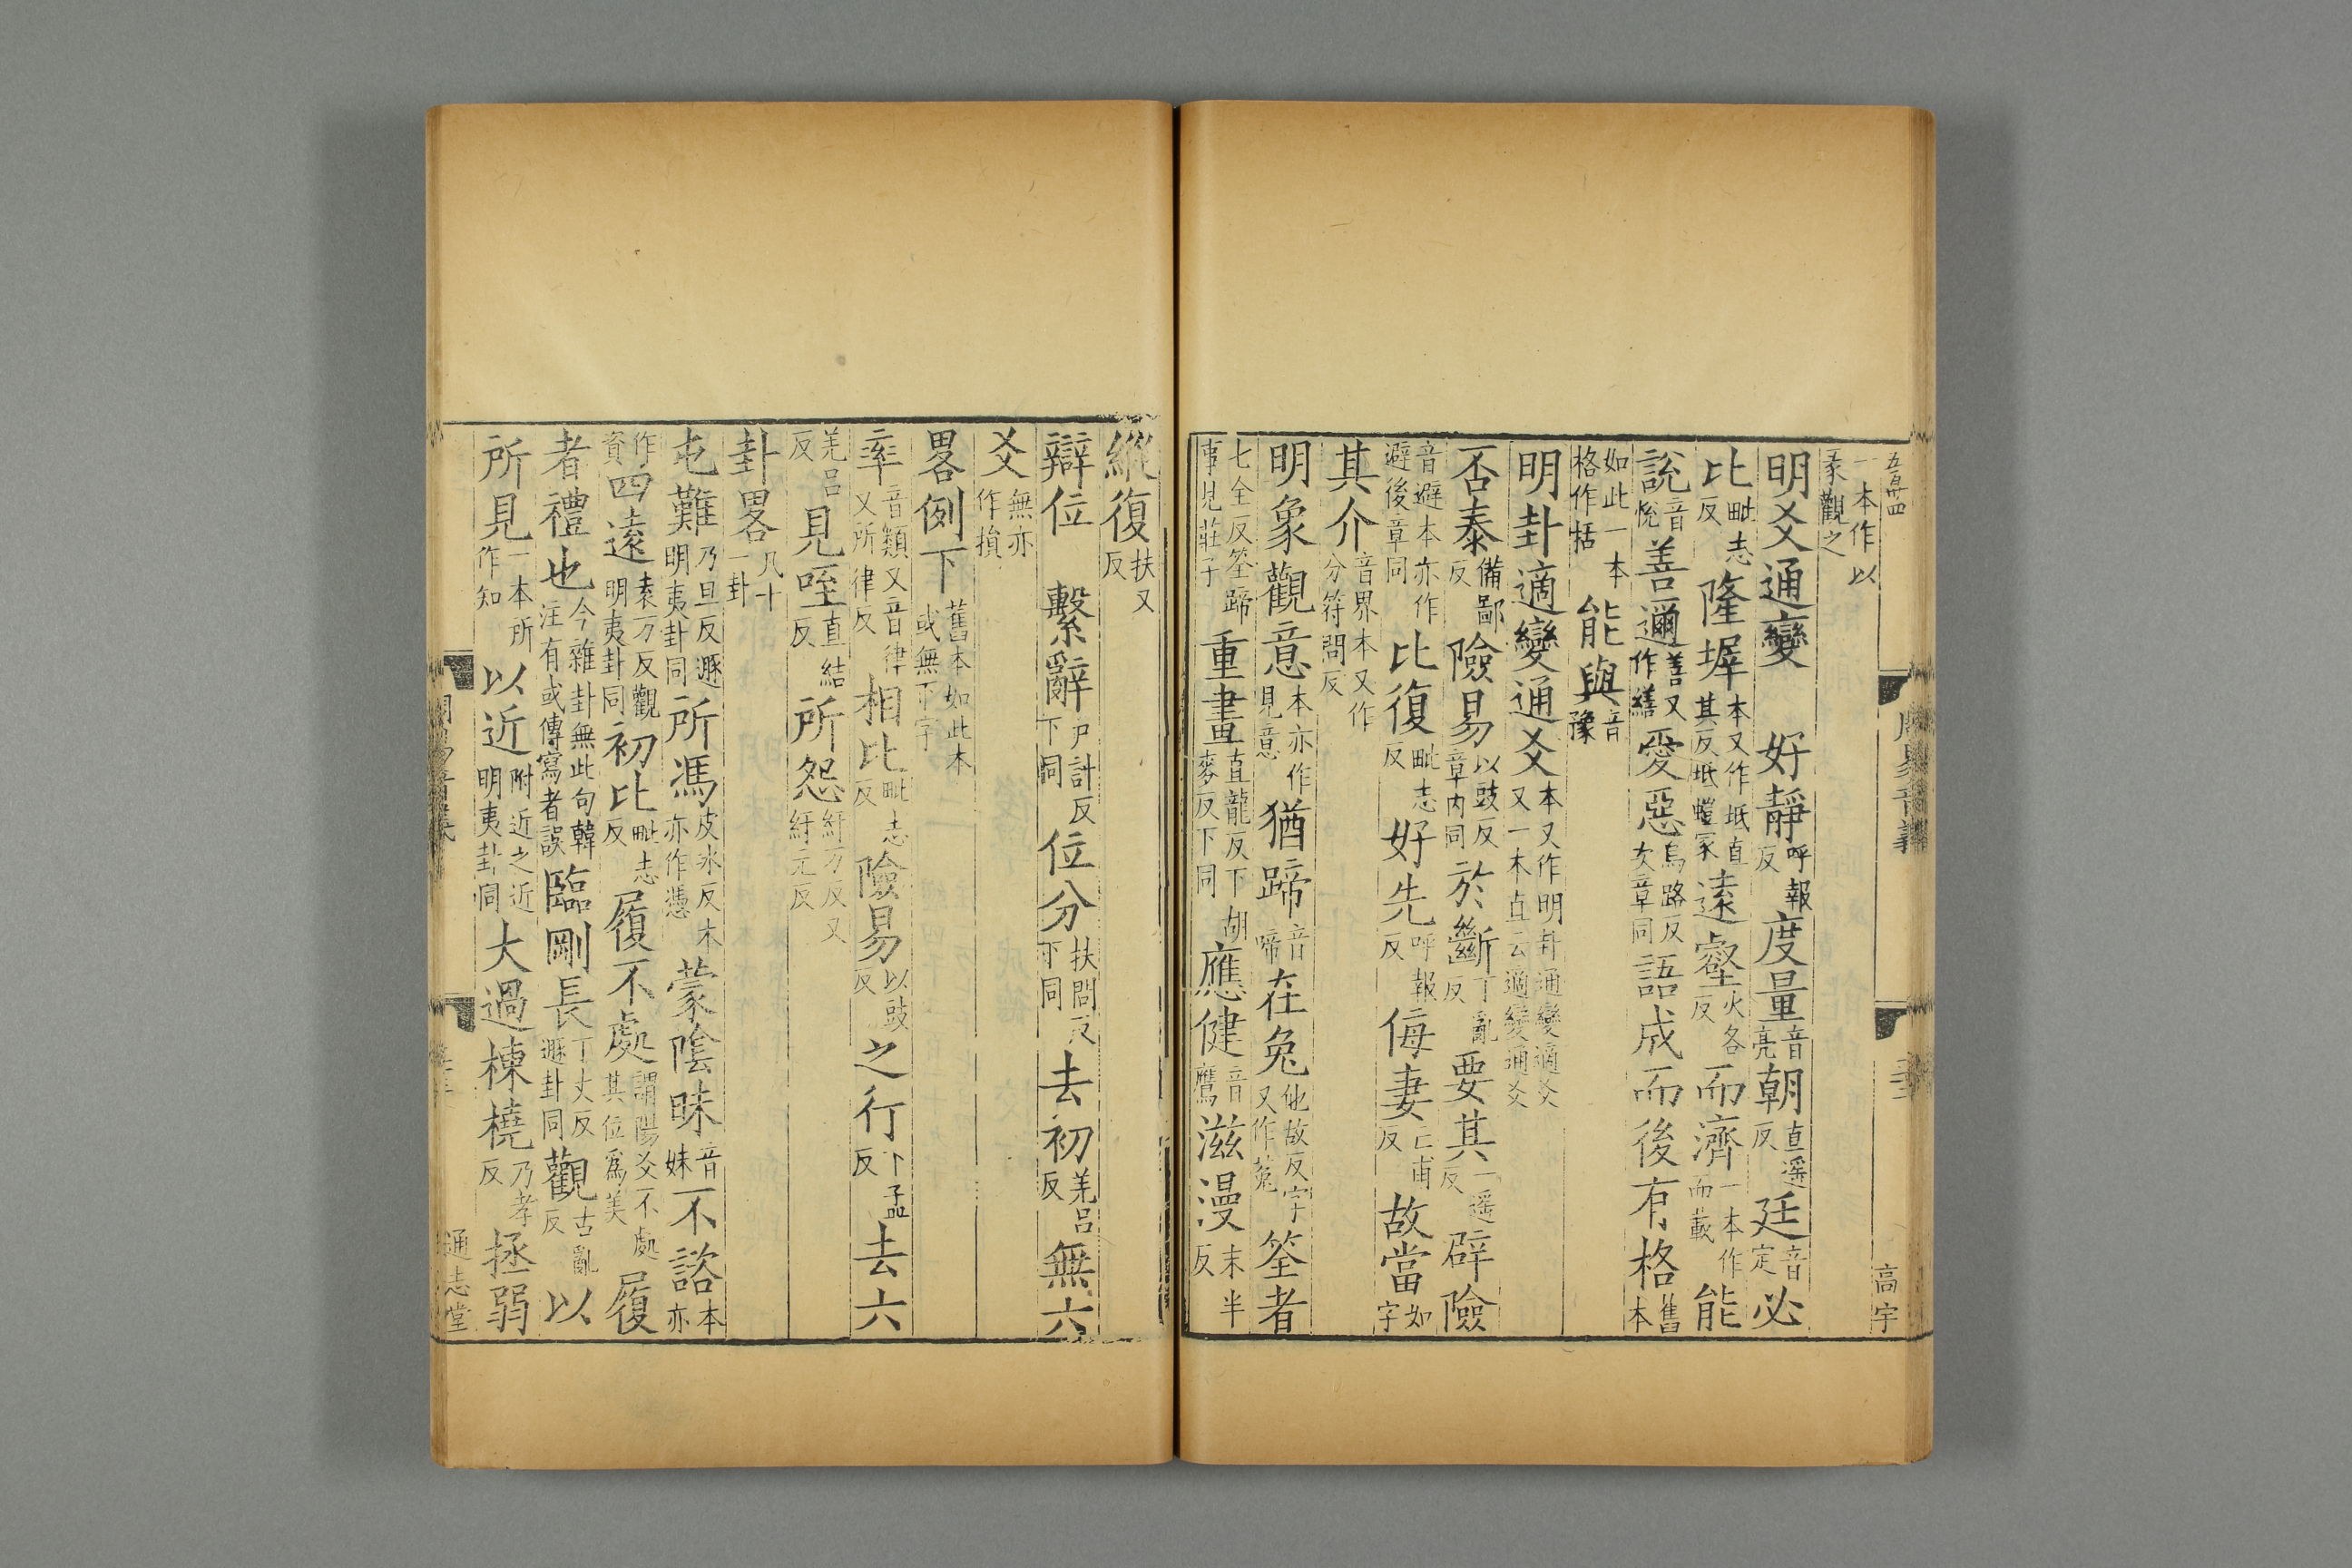 五百卅四
周易音義
高宇
一本作以彖觀之
明爻通變　好靜呼報反度量音亮朝直遥反廷音定必
比毗志反隆墀本又作坻直其反坻螘冢遠壑火各反而濟一本作而載能
說音悅善邇善又作繕愛惡烏路反次章同語成而後有格舊本
如此一本格作括能與音豫
明卦適變通爻本又作明卦通變適爻又一本直云適變通爻
否泰備鄙反險易以豉反章内同於斷丁亂反要其一遥反辟險
音避本亦作避後章同比復毗志反好先呼報反侮妻亡甫反故當如字
其介音界本又作分符問反
明象觀意本亦作見意猶蹄音啼在兔他故反字又作菟筌者
七全反筌蹄事見莊子重畫直龍反下胡麥反下同應健音鷹滋漫末半反
縱復扶又反
辯位　繫辭户計反下同位分扶問反下同去初羌吕反無六
爻無亦作損
畧例下舊本如此本或無下字
率音類又音律又所律反相比毗志反險易以豉反之行下孟反去六
羌吕反見咥直結反所怨紆万反又紆元反
卦畧凡十一卦
屯難乃旦反遯明夷卦同所馮皮冰反本亦作憑蒙陰昧音妹不諮本亦
作資四遠袁万反觀明夷卦同初比毗志反履不處謂陽爻不處其位爲美履
者禮也今雜卦無此句韓注有或傳寫者誤臨剛長丁丈反遯卦同觀古亂反以
所見一本所作知以近附近之近明夷卦同大過棟橈乃孝反拯弱
周易音義
通志堂